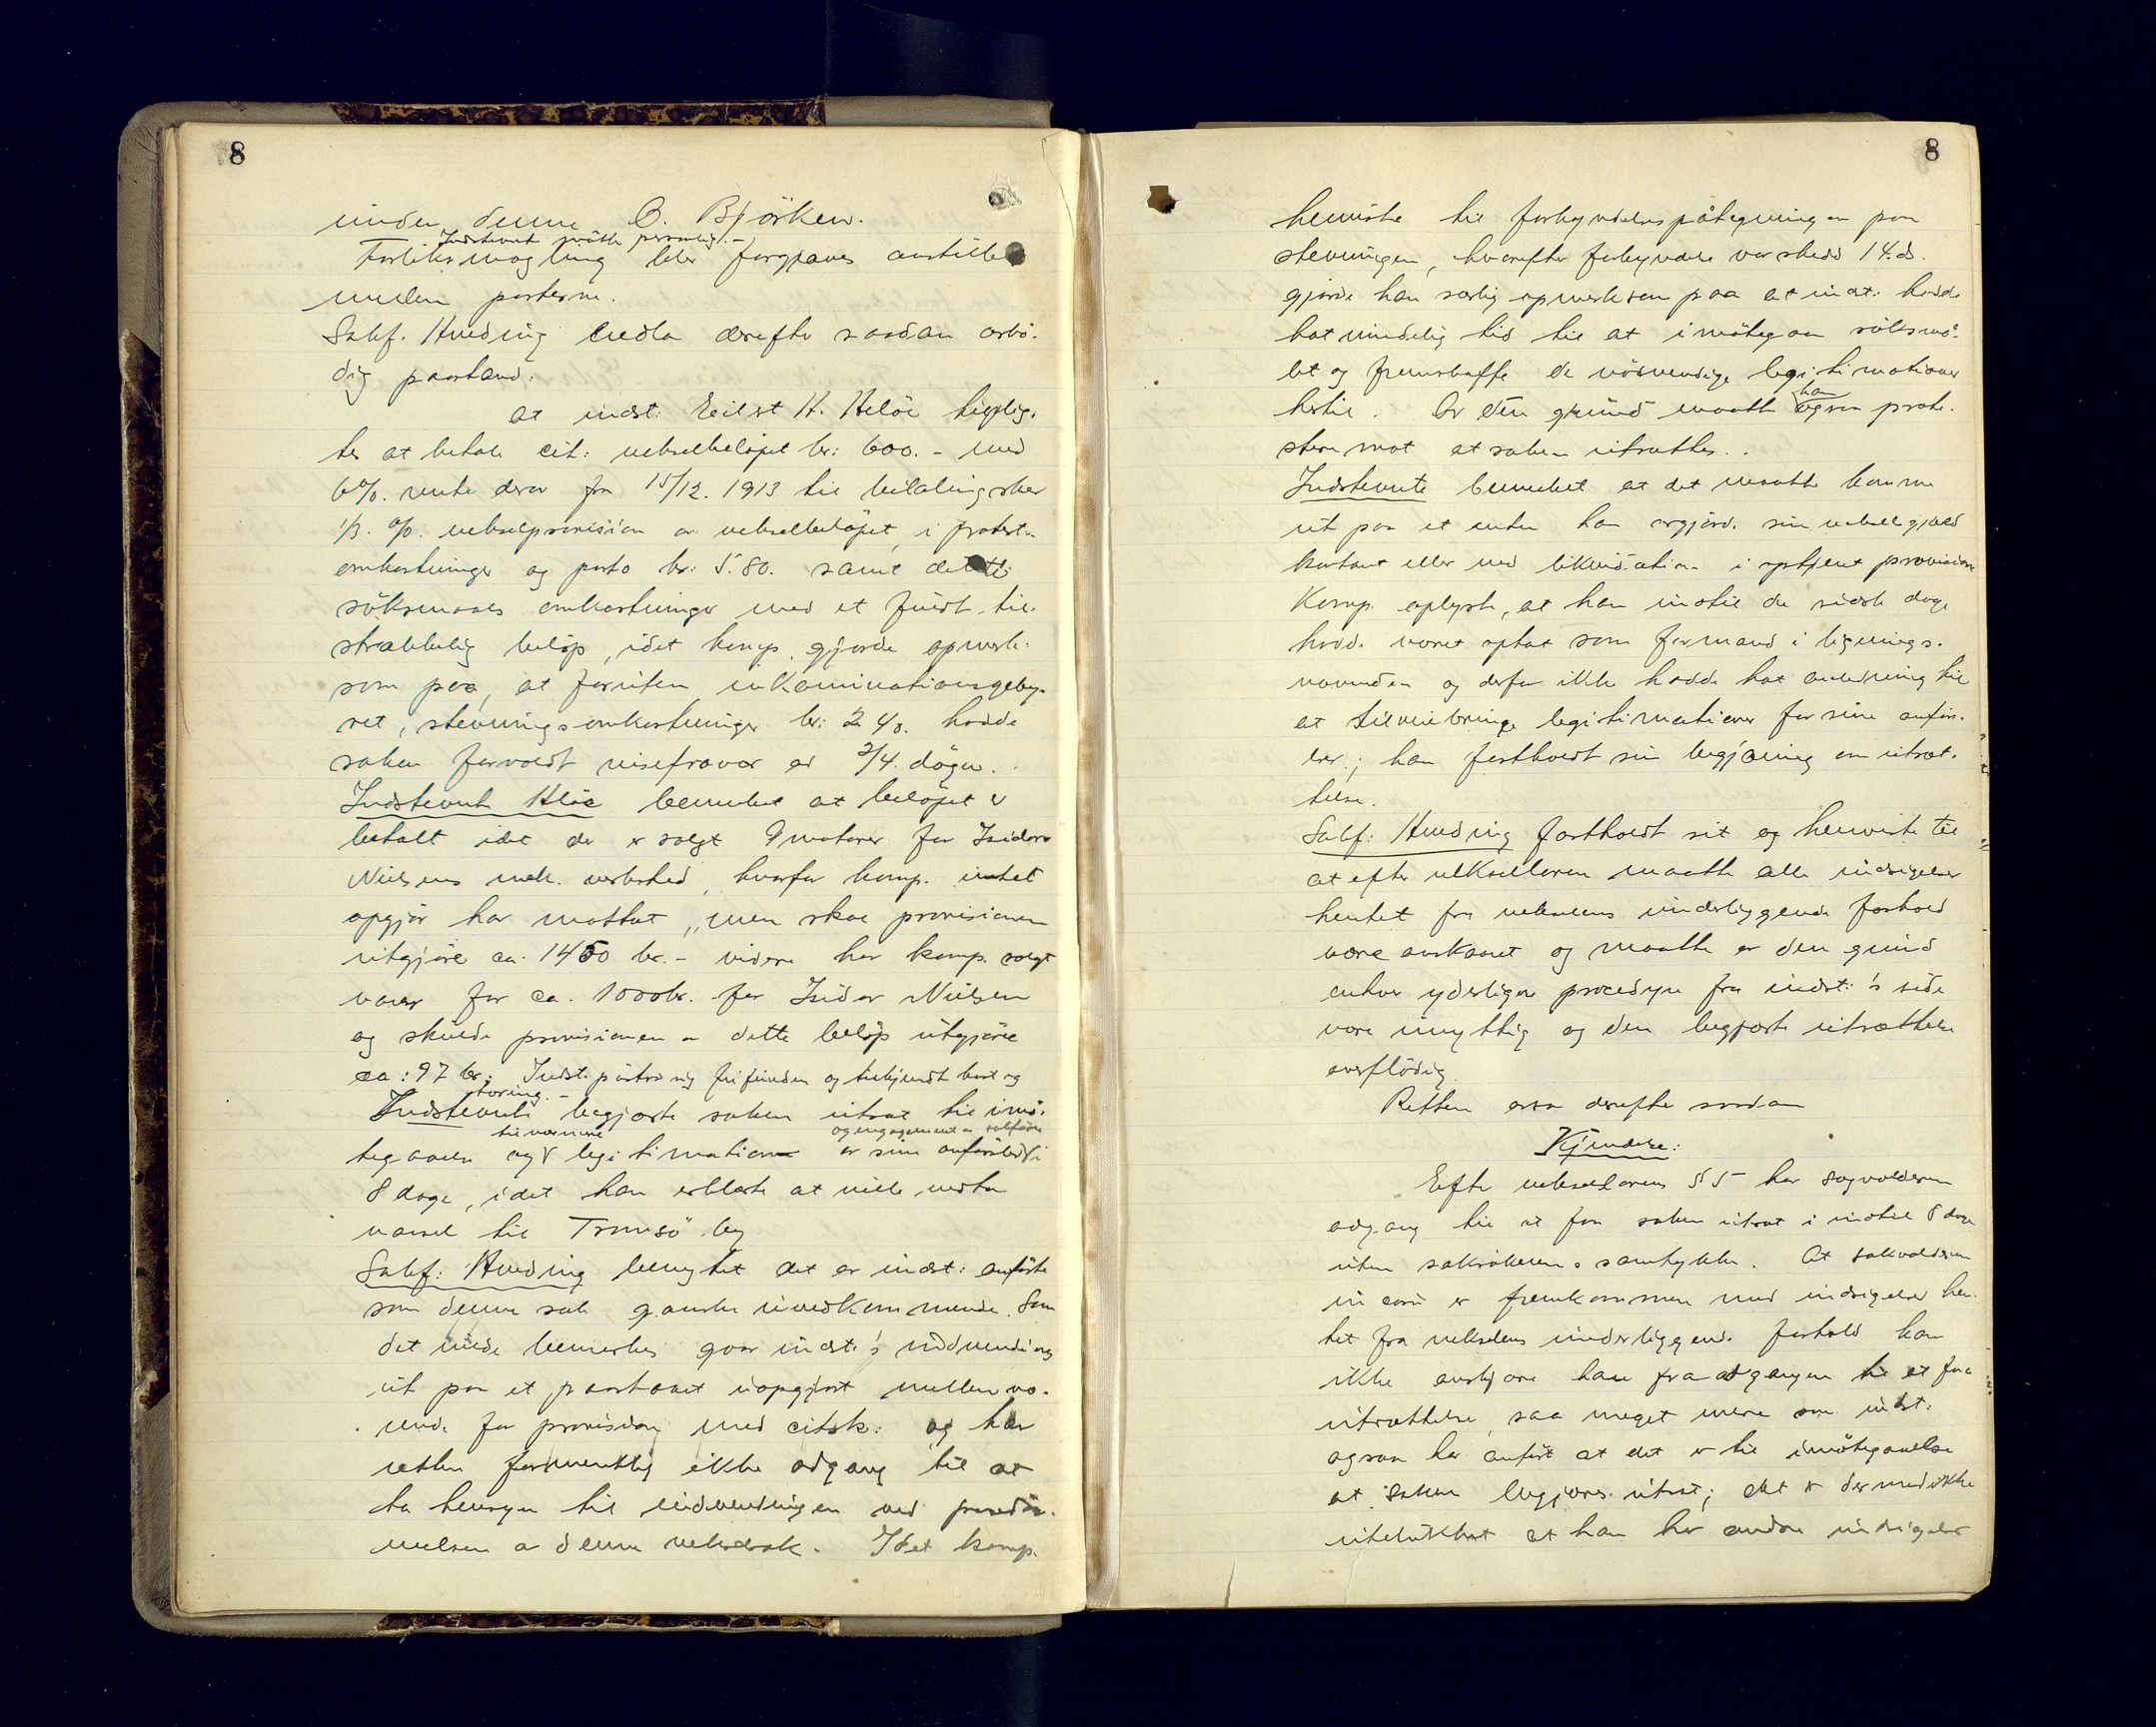 8
under denne O. Bjørken.
Indstevnte møtte personlig. -
Forliksmægling blev forgjæves anstillet
mellem parterne.
Sakf. Hveding nedla derefter saadan ærbø-
dig paastand:
at indst: Eilert H. Heløe tilplig-
tes at betale cit: vekselbeløpet kr: 600. - med
6%. rente derav fra 15/12. 1913 til betaling sker
1/3. %. vekselprovision av vekselbeløpet, i protest-
omkostninger og porto kr: 5.80. samt dette
søksmaals omkostninger med et fuldt til-
strækkelig beløp, idet komp. gjorde opmerk-
som paa, at foruten inkaminationsgeby-
ret, stevningsomkostninger kr: 2.40. hadde
saken forvoldt reisefravær av 3/4. døgn.
Indstevnte Heløe bemerket at beløpet er
betalt idet der er solgt 9 motorer for Isidor
Nielsens mek. verksted, hvorfor komp. intet
opgjør har mottat, men skal provisionen
utgjøre ca. 1450 kr. - videre har komp. solgt
varer for ca. 1000 kr. for Isidor Nielsen
og skulde provisionen av dette beløp utgjøre
ca: 97 kr. Indst. påstod sig frifunden og tilkjendt kost og
tæring. -
Indstevnte begjærte saken utsat til imø-
til nærmere og engagement av sakfører
tegaaelse og legitimation av sine anførsler i
8 dage, idet han erklærte at ville vedta
varsel til Tromsø by
Sakf: Hveding benegtet det av indst: anførte
som denne sak ganske uvedkommende. Som
det vilde bemerkes gaar indst:s indvending
ut paa et paastaaet uopgjort mellemvæ-
rende for provision med citsk: og har
retten formentlig ikke adgang til at
ta hensyn til indvendingen ved paadøm-
melsen av denne vekselsak. Idet komp.
8
henviste til forkyndelsespåtegningen paa
stevningen, hvorefter forkyndelse var skedd 14. ds.
gjorde han særlig opmerksom paa at indst: hadde
hat rundelig tid til at imøtegaa søksmå-
let og fremskaffe de nødvendige legitimationer
hertil. Av den grund maatte han ogsaa prote-
stere mot at saken utsattes..
Indstevnte bemerket at det maatte komme
ut paa et enten han avgjorde sin vekselgjæld
kontant eller ved likvidation i optjent provision
Komp. oplyste, at han indtil de sidste dage
hadde været optat som formand i lignings-
nævnden og derfor ikke hadde hat anledning til
at tilveiebringe legitimationer for sine anførs-
ler; han fastholdt sin begjæring om utsæt-
telse.
Sakf: Hveding fastholdt sit og henviste til
at efter vekselloven maatte alle indsigelser
hentet fra vekselens underliggende forhold
være avskaaret og maatte av den grund
enhver yderligere procedyre fra indst:'s side
være unyttig og den begjærte utsættelse
overflødig.
Retten avsa derefter saadan
Kjendelse:
Efter veksellovens § 5 har sagvolderen
adgang til at faa saken utsat i indtil 8 dage
uten saksøkerens samtykke. At sakvolderen
in casu er fremkommen med indsigelser hen-
tet fra vekselens underliggende forhold kan
ikke avskjære ham fra adgangen til at faa
utsættelse, saa meget mere som indst.
ogsaa har anført at det er til imøtegaaelse
at saken begjæres utsat; det er dermed ikke
utelukket at han har andre indsigelser